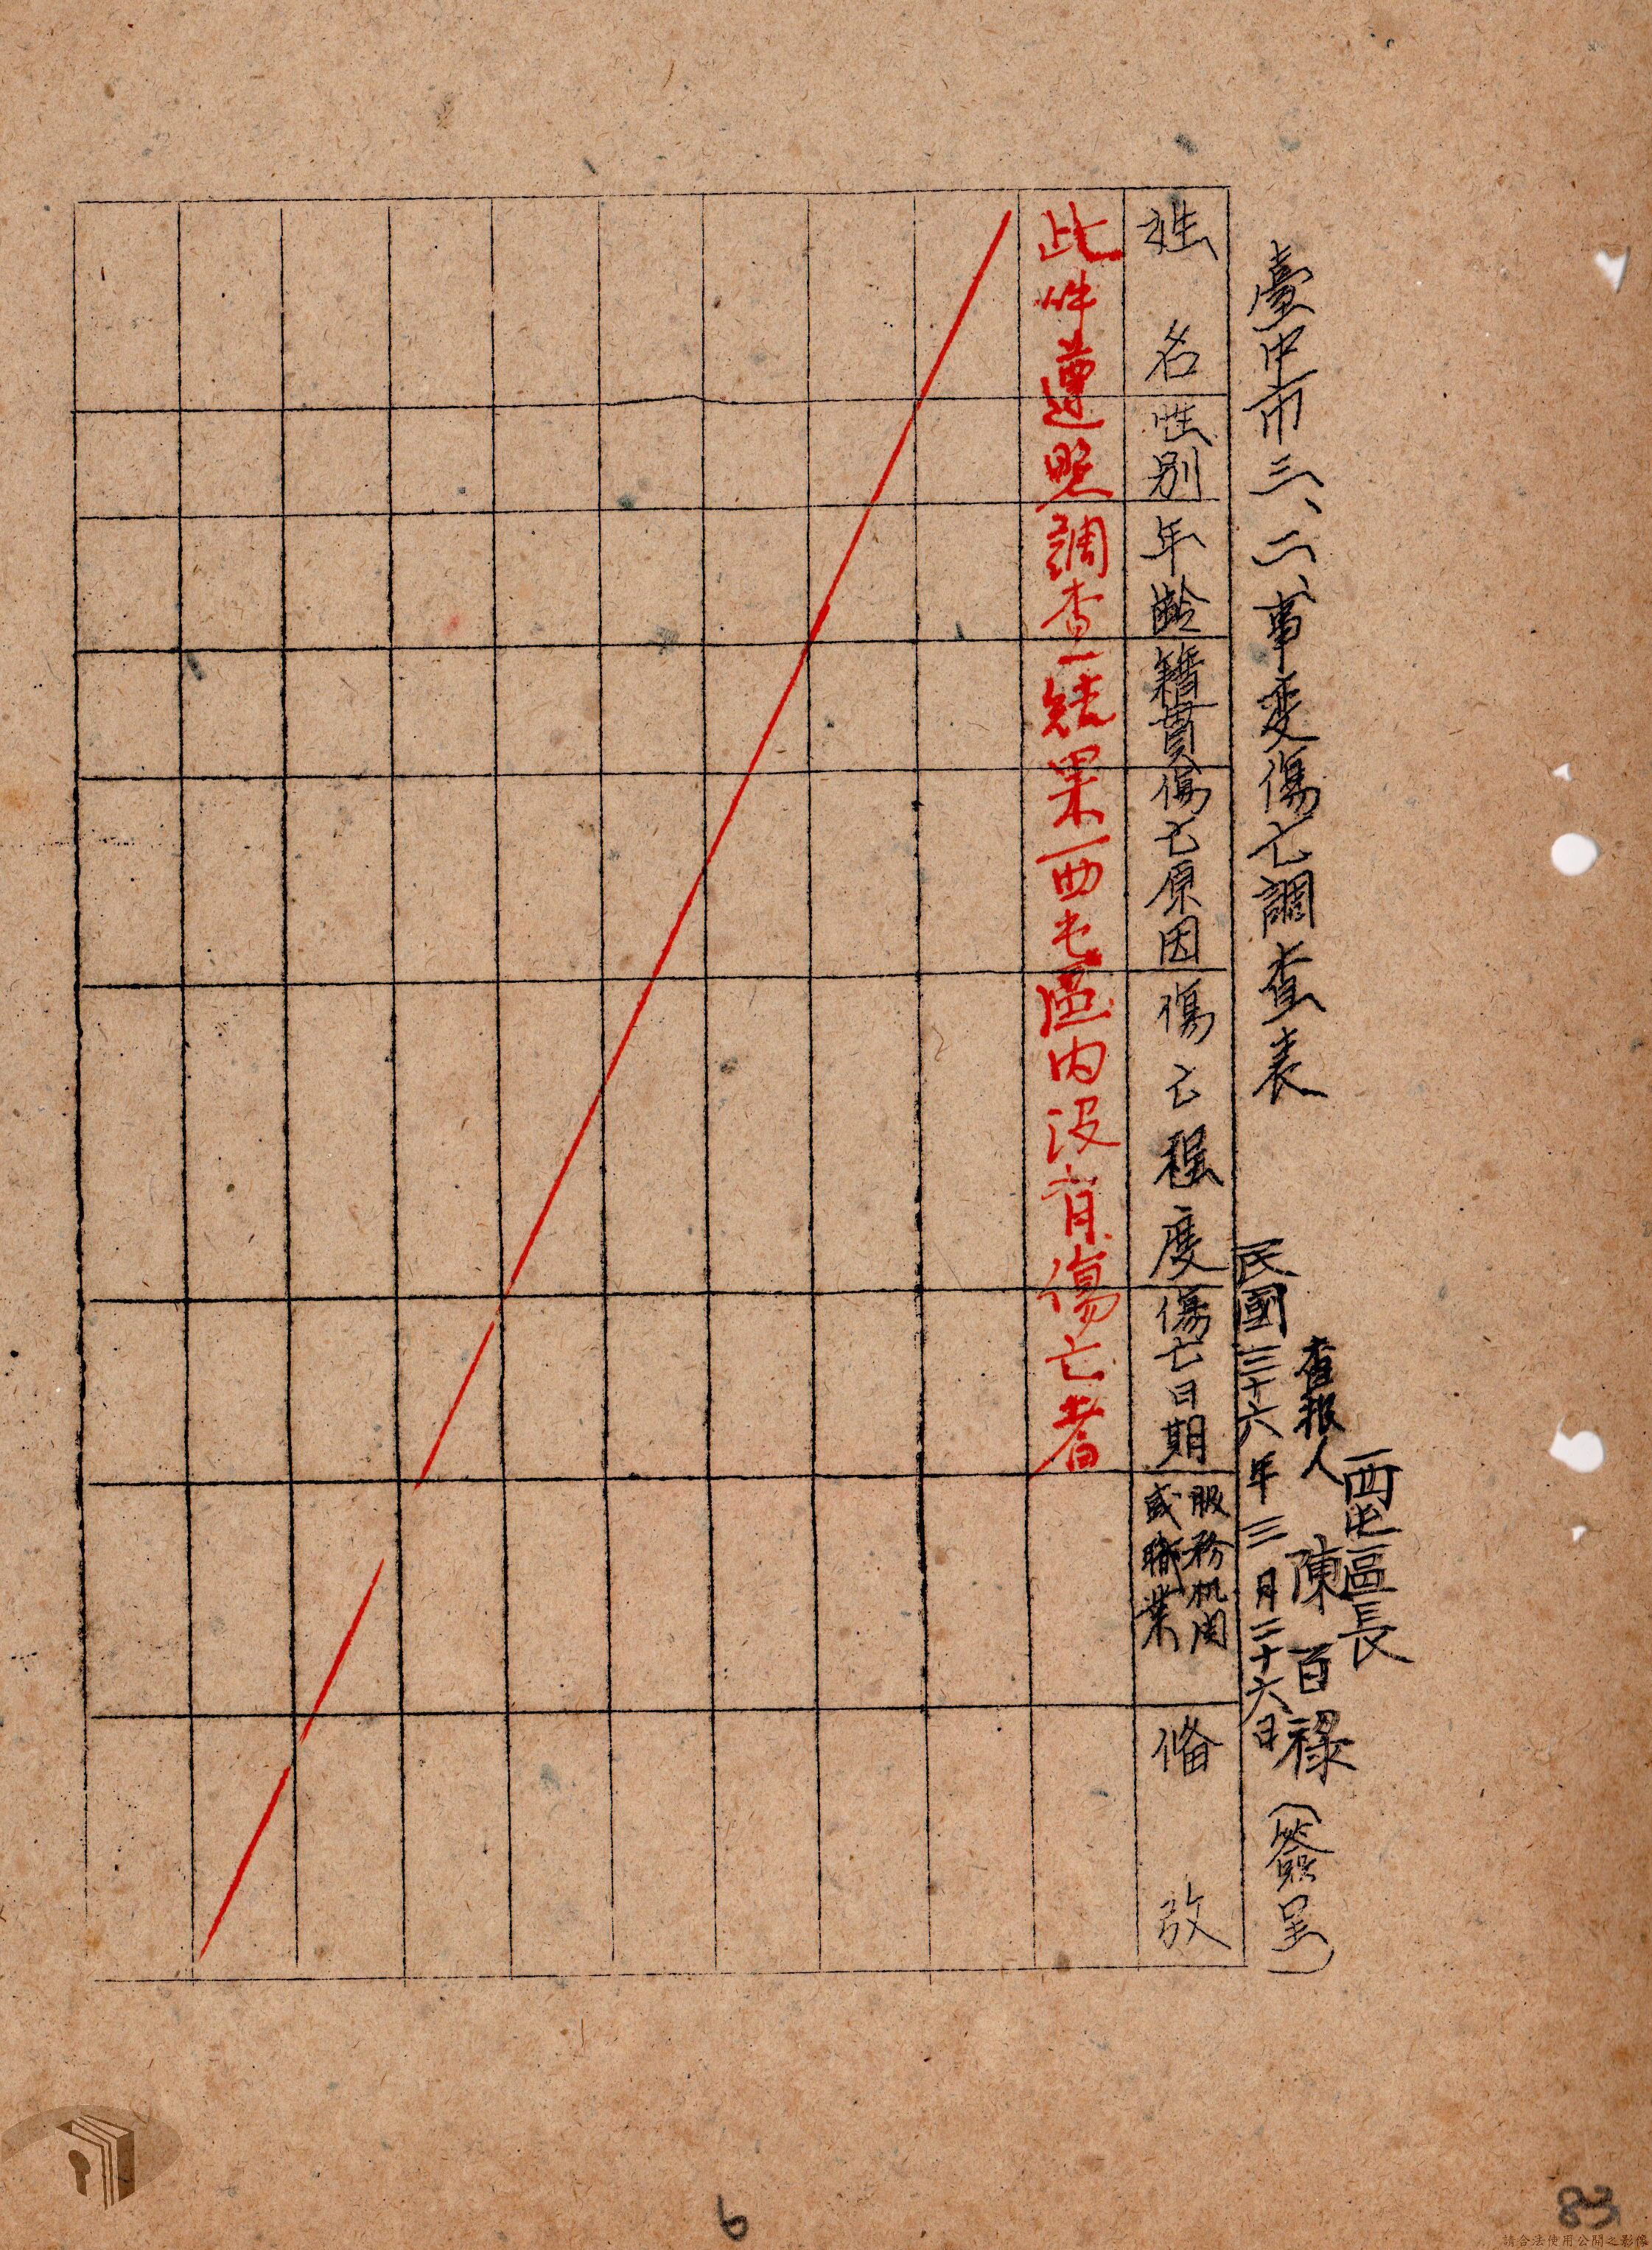 臺中市三、二、事变傷亡調查表
西屯區長
查報人 陳百祿（簽呈）
民國三十六年三月二十六日
姓名
性别
年齡
籍貫
傷亡原因
傷亡程度
傷亡日期
服務机関
或職業
俻攷
此件遵照調查結果西屯區内沒有傷亡者
6
83
請合法使用公開之影像